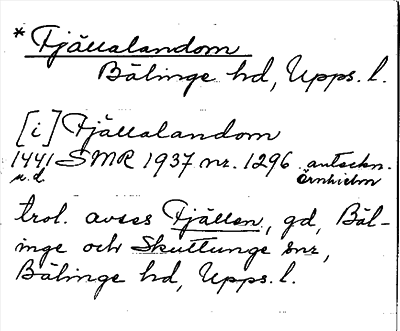 * Fjällalandom
Bälinge hd, Upps. l.
[i] Fjällalandom
1441 SMR 1937 nr. 1296 anteckn.
u.d. Örnhielm
trol. avses Fjällen, gd, Bäl-
inge och Skuttunge snr,
Bälinge hd, Upps. l.